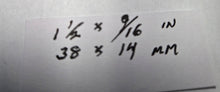 1 1/2 x 9/16 IN
38 x 14 MM